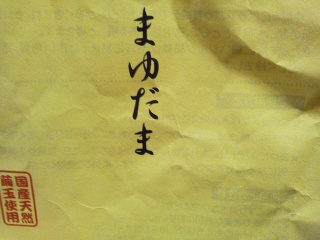 まゆだま
国産天然
繭玉使用